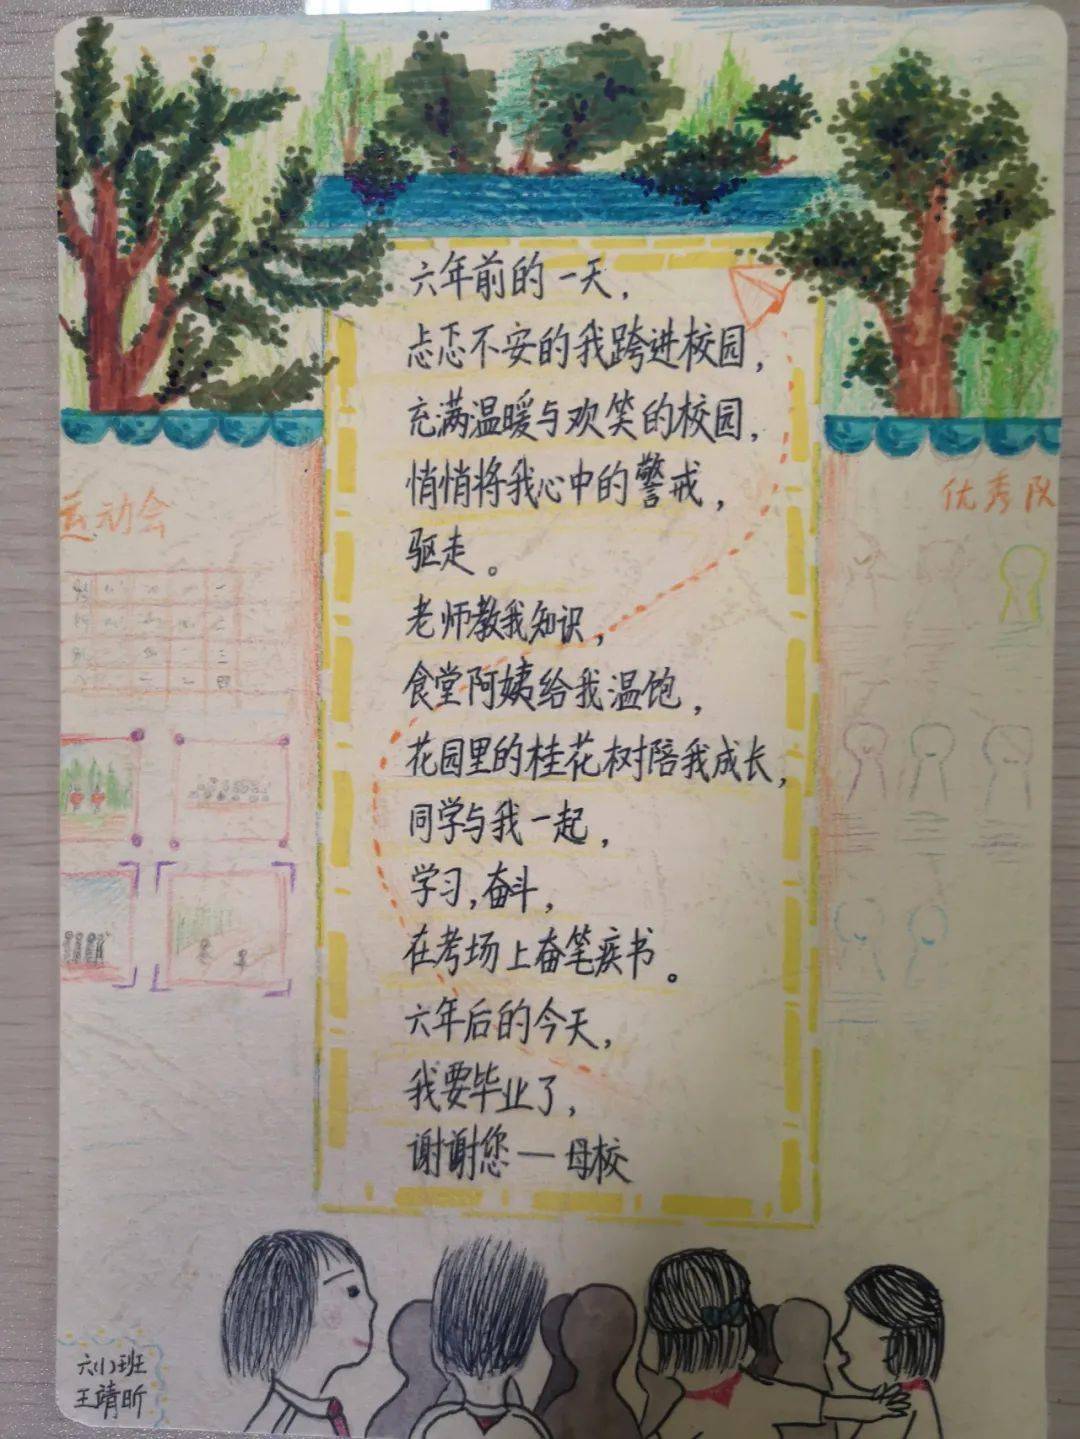 六年前的一天，
忐忑不安的我跨进校园，
充满温暖与欢笑的校园，
悄悄将我心中的警戒，
驱走。
老师教我知识，
食堂阿姨给我温饱，
花园里的桂花树陪我成长，
同学与我一起，
学习，奋斗，
在考场上奋笔疾书。
六年后的今天，
我要毕业了，
谢谢您一母校
运动会
优秀队
六(1)班
王靖昕